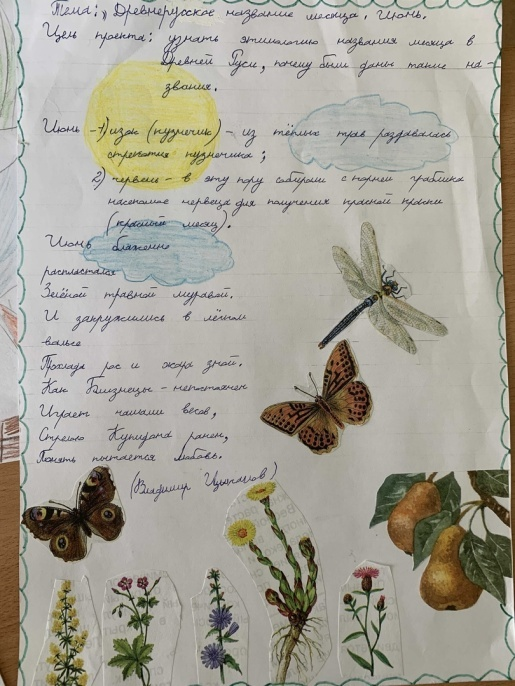 Тема: „Древнерусское название месяца. Июнь.
Цель проекта: узнать этимологию названия месяца в
Древней Руси, почему были даны такие на-
звания.
Июнь - 1) изок (кузнечик) - из тёплых трав раздавалась
стрекотня кузнечика;
2) червень - в эту пору собирали с корней грабника
насекомое червеца для получения красной краски
(красный месяц).
Июнь блаженно
распластался
Зелёной травной муравой.
И закружились в лёгком
вальсе
Прохлада рос и жара зной.
Как Близнецы - непостоянен
Играет чашами весов,
Стрелою Купидона ранен,
Понять пытается любовь.
(Владимир Цыганков)